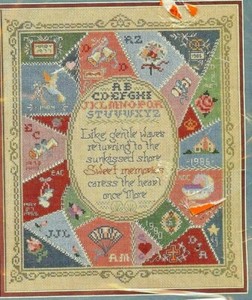 AZ
AB
CDEFGHI
JKLMNOPQR
STUVWXYZ
Like gentle waves
returning to the
sunkissed shore
Sweet memories
caress the heart
once more
EC
EAC
1986
JJL
AM
1980
DJA